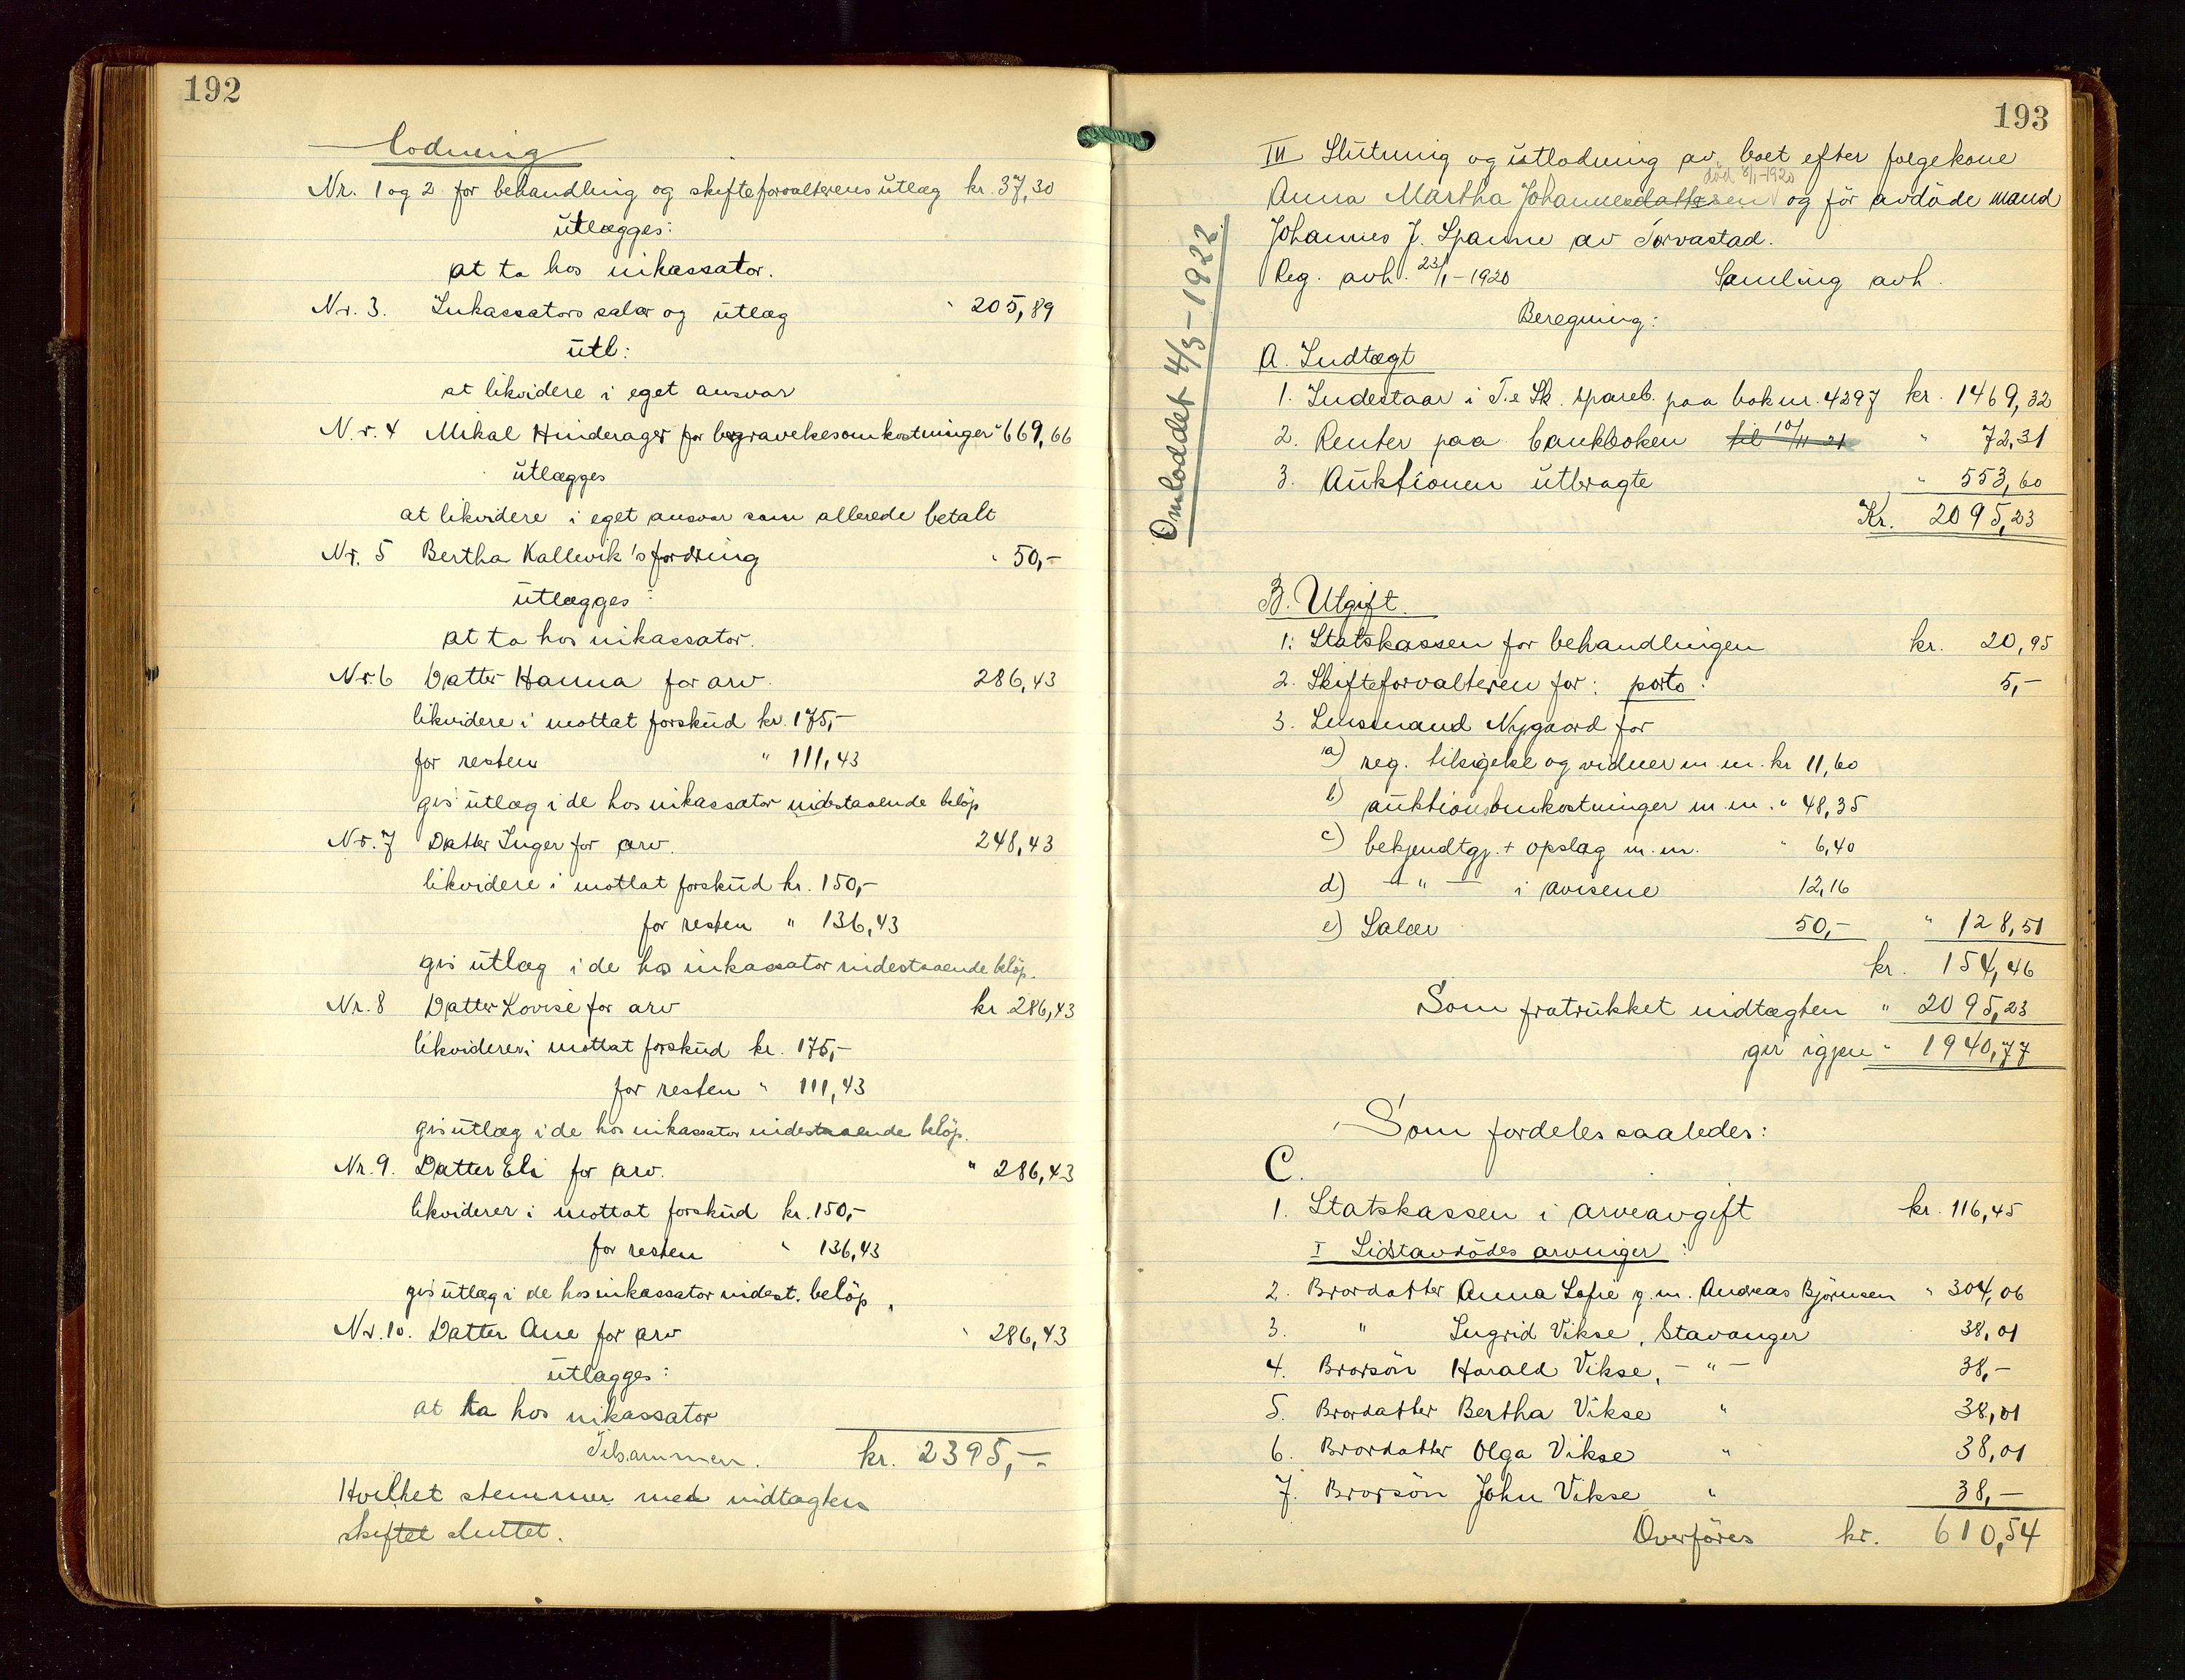 192
lodning
Nr. 1 og 2 for behandling og skifteforvalterens utlæg kr. 37,30
utlægges:
at ta hos inkassator.
Nr. 3. Inkassators salær og utlæg " 205,89
utl:
at likvidere i eget ansvar
Nr. 4 Mikal Hinderager for begravelsesomkostninger " 669,66
utlægges
at likvidere i eget ansvar som allerede betalt
Nr. 5 Bertha Kallevik's fordring " 50,-
utlægges:
at ta hos inkassator.
Nr. 6 Datter Hanna for arv. 286,43
likvidere i mottat forskud kr. 175,-
for resten " 111,43
gis utlæg i de hos inkassator indestaaende beløp
Nr. 7 Datter Inger for arv. 248,43
likvidere i mottat forskud kr. 150,-
for resten " 136,43
gis utlæg i de hos inkassator indestaaende beløp.
Nr. 8 Datter Lovise for arv kr. 286,43
likviderer i mottat forskud kr. 175,-
for resten " 111,43
gis utlæg i de hos inkassator indestaaende beløp.
Nr. 9. Datter Eli for arv. " 286,43
likviderer i mottat forskud kr. 150,-
for resten " 136,43
gis utlæg i de hos inkassator indest. beløp.
Nr. 10. Datter Ane for arv " 286,43
utlægges:
at ta hos inkassator
Tilsammen. kr. 2395,-
Hvilket stemmer med indtægten
skiftet sluttet.
193
Omloddet 4/3-1922
III Slutning og utlodning av boet efter føgekone
død 8/1-1920
Anna Martha Johannesdattersen og før avdøde mand
Johannes J. Spanne av Torvastad.
Reg. avh. 23/1-1920 Samling avh.
Beregning:
A. Indtægt
1. Indestaar i T. e Sk. spareb. paa bok nr. 4297 kr. 1469,32
2. Renter paa bankboken til 10/11 21 " 72,31
3. Auktionen utbragte " 553,60
Kr. 2095,23
B. Utgift.
1. Statskassen for behandlingen kr. 20,95
2. Skifteforvalteren for: porto: 5,-
3. Lensmand Nygaard for
a) reg. tilsigelse og vidner m. m. kr 11,60
b) auktionsomkostninger m. m. " 48,35
c) bekjendtgj. + opslag m. m. " 6,40
d) - " - i aviserne 12,16
e) Salær 50,- " 128,51
kr. 154,46
Som fratrukket indtægten " 2095,23
gir igjen " 1940,77
Som fordeles saaledes:
C.
1. Statskassen i arveavgift kr. 116,45
I Sidstavdødes arvinger:
2. Brordatter Anna Sofie g. m. Andreas Bjørnsen " 304,06
3. " Ingrid Vikse, Stavanger 38,01
4. Brorsøn Harald Vikse, - " - 38,-
5. Brordatter Bertha Vikse " 38,01
6. Brordatter Olga Vikse " 38,01
7. Brorsøn John Vikse " 38,-
Overføres kr. 610,54